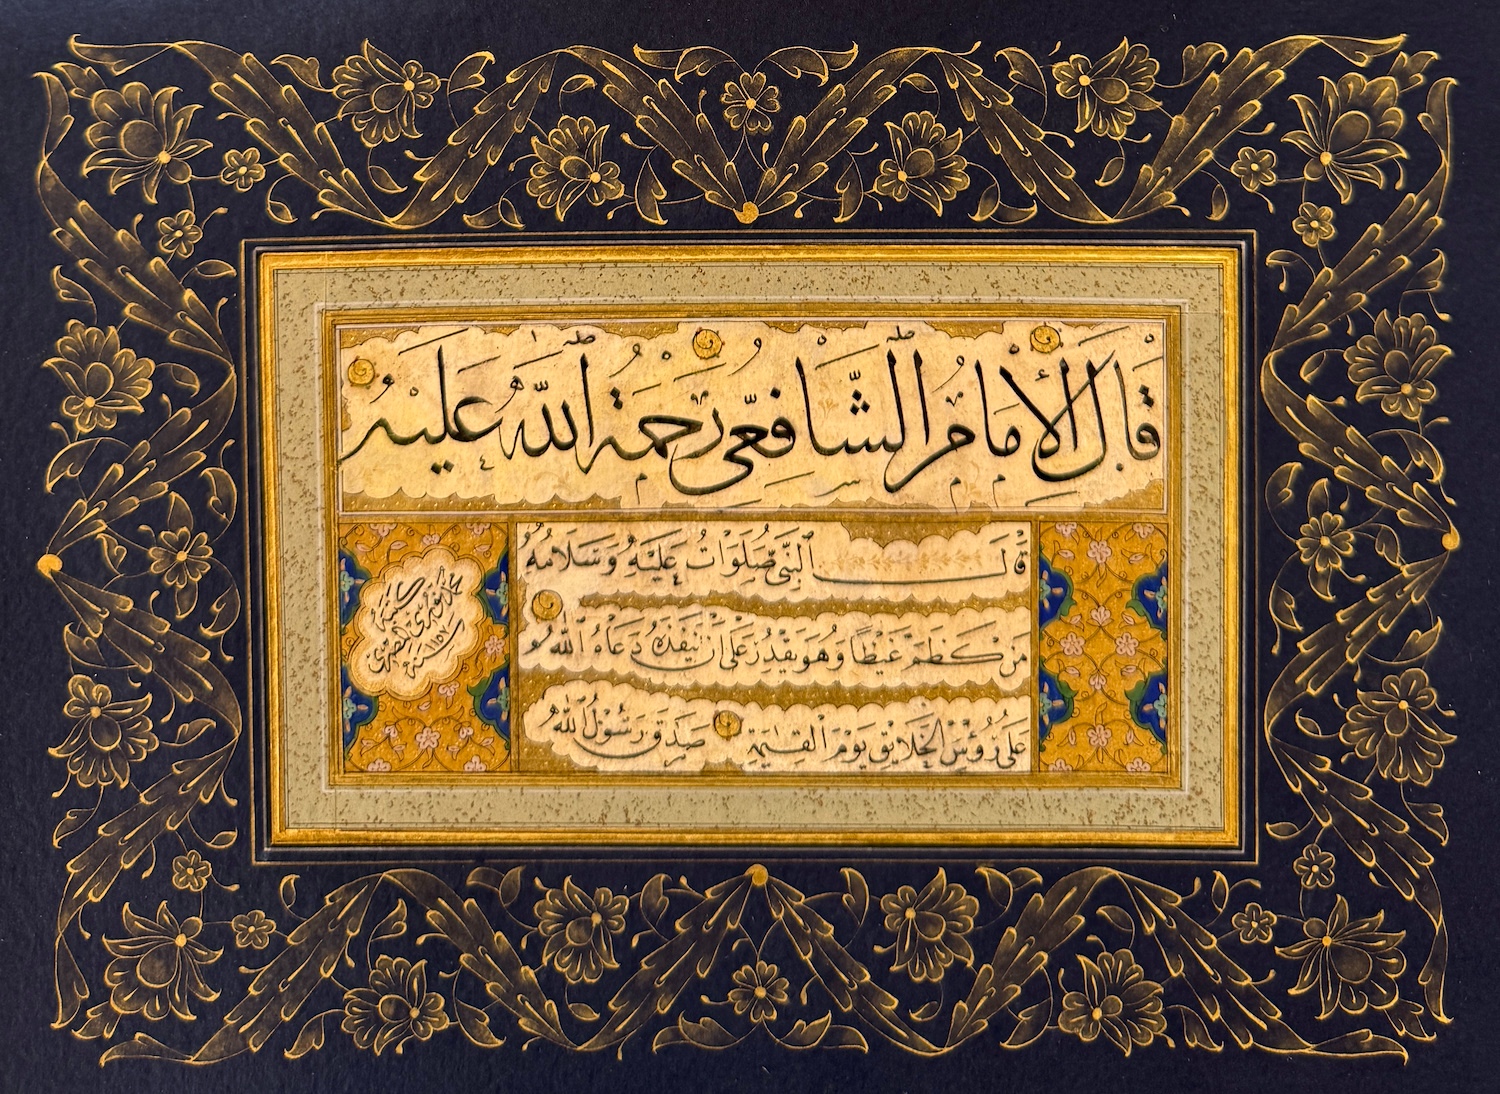 قَالَ الْإِمَامُ الشَّافِعِيُّ رَحْمَةُ اللّٰهِ عَلَيْهِ
قَالَ النَّبِيُّ صَلَوَاتُ عَلَيْهِ وَسَلَامُهُ
مَنْ كَظَمَ غَيْظًا وَهُوَ يَقْدِرُ عَلَى اَنْ يُنَفِّذَهُ دَعَاهُ اللّٰهُ
عَلَى رُؤُسِ الْخَلَايِقِ يَوْمَ الْقِيٰمَةِ صَدَقَ رَسُوْلُ اللّٰهِ
كتبه
محمد
سنة ١١٥٧